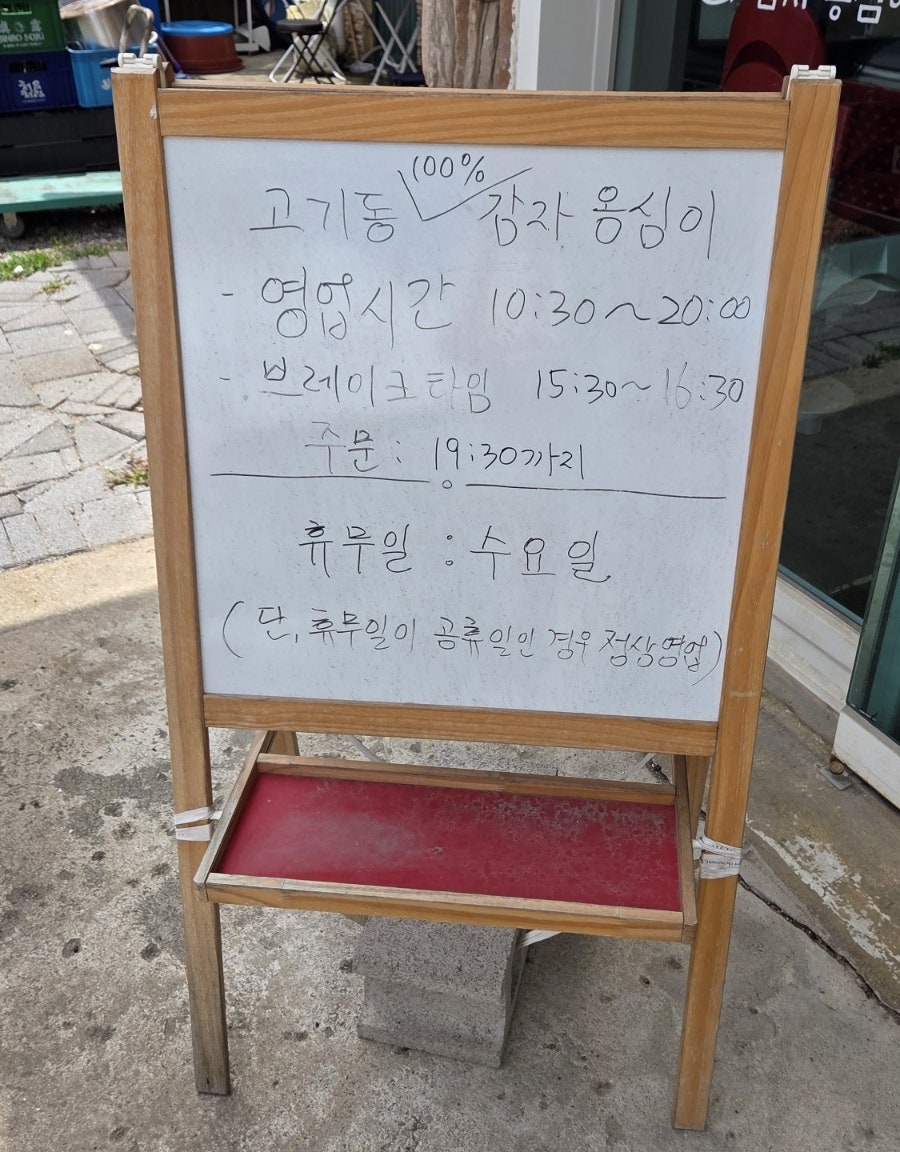 고기동 100% 감자 옹심이
- 영업시간 10:30~20:00
- 브레이크타임 15:30~16:30
주문: 19:30까지
휴무일 : 수요일
(단, 휴무일이 공휴일인 경우 정상영업)